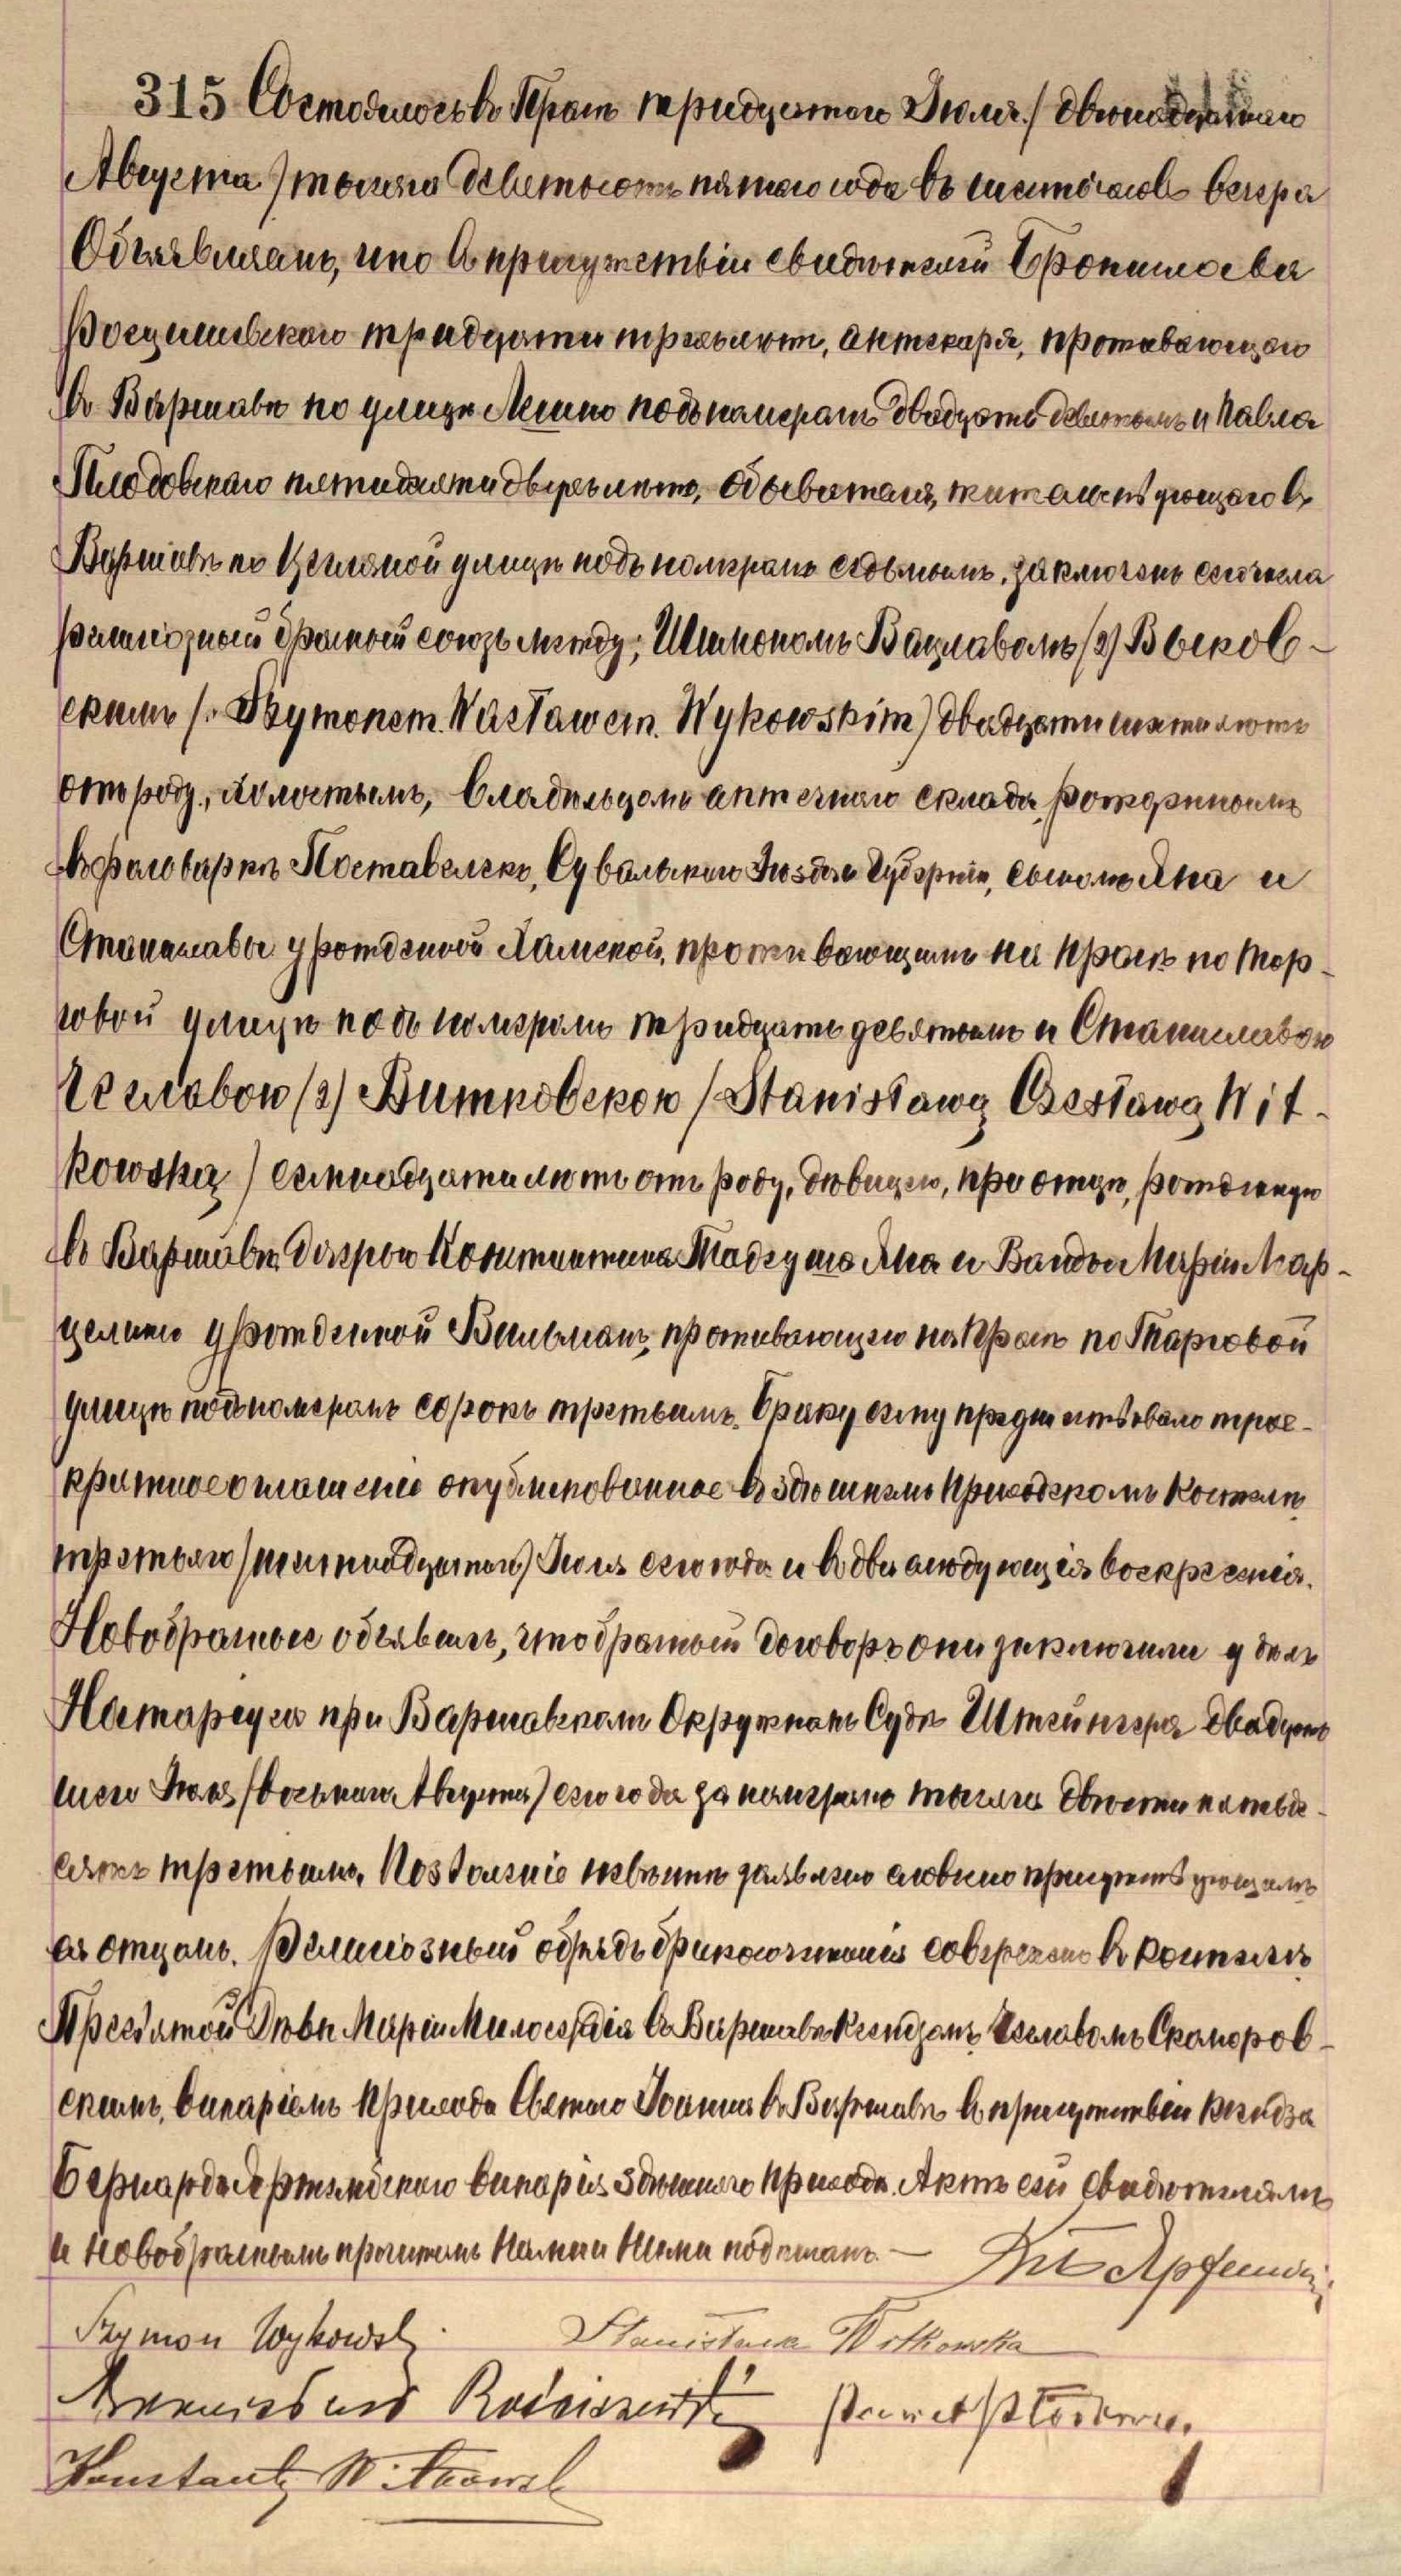 315 Состоялось въ Прагѣ тридцатаго Іюля /двѣнадцатаго
Августа/ тысяча девятьсотъ пятаго года въ шесть часовъ вечера
Объявляемъ, что въ присутствіи свидѣтелей Бронислава
Росцишевскаго тридцати трехъ лѣтъ, аптекаря, проживающаго
въ Варшавѣ по улицѣ Лешно подъ номеромъ двадцать девятымъ и Павла
Плодовскаго пятидесяти двухъ лѣтъ, обывателя, жительствующаго въ
Варшавѣ по Цегляной улицѣ подъ номеромъ седьмымъ, заключенъ сего числа
религіозный брачный союзъ между: Шимономъ Вацлавомъ (2) Выков-
скимъ /: Szymonem Wacławem Wykowskim) двадцати лѣтъ
отъ роду, холостымъ, владѣльцомъ аптечнаго склада, рожденнымъ
въ фольваркѣ Поставелекъ, Сувалкскаго Уѣзда и Губерніи, сыномъ Яна и
Станиславы урожденной, проживающимъ на Прагѣ по Тор-
говой улицѣ подъ номеромъ тридцать девятымъ и Станиславою
Чеславою (2) Витковскою /Stanisławą Czesławą Wit-
kowską) семнадцати лѣтъ отъ роду, дѣвицею, при отцѣ, рожденною
въ Варшавѣ, дочерью Константина Тадеуша Яна и Ванды Маріи Мар-
целины урожденной Вильманъ, проживающею на Прагѣ по Тарговой
улицѣ подъ номеромъ сорокъ третьимъ. Браку сему предшествовало трое-
кратное оглашеніе опубликованное въ здѣшнемъ Приходскомъ Костелѣ
третьяго /шестнадцатаго/ Іюля сего года и въ два слѣдующія воскресенія.
Новобрачные объявили, что брачный договоръ они заключили у дѣлъ
Нотаріуса при Варшавскомъ Окружномъ Судѣ Штейнгера двадцать
Іюля /восьмаго Августа/ сего года за номеромъ тысяча двѣсти пятьде-
сятъ третьимъ. Позволеніе невѣстѣ заявлено словесно присутствующимъ
ея отцомъ. Религіозный обрядъ бракосочетанія совершенъ въ костелѣ
Пресвятой Дѣвы Маріи Милосердія въ Варшавѣ Ксендзомъ Чеславомъ Скапоров-
скимъ, викаріемъ прихода Святаго Іоанна въ Варшавѣ въ присутствіи ксендза
Бернарда викарія здѣшняго прихода. Актъ сей свидѣтелямъ
и новобрачнымъ прочитанъ Нами и Ними подписанъ. —
Szymon Wykowski. Stanisława Witkowska
Bronisław Rościszewski Paweł
Konstanty Witkowski